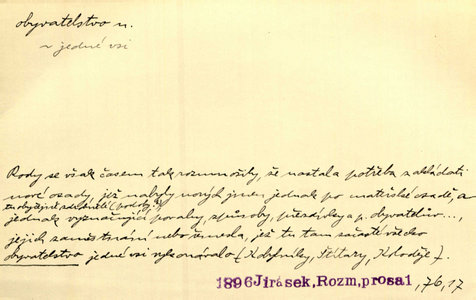 obyvatelstvo n.
v jedné vsi
Rody se však časem tak rozmnožily, že nastala potřeba zakládati
nové osady, jež nabyly nových jmen jednak po mateřské osadě, a
tu obyčejně zdrobnělé (podoby),
jednak vyznačující povahy, způsoby, přezdívky a p. obyvatelův...,
jejich zaměstnání nebo řemesla, jež tu tam začasté všecko
obyvatelstvo jedné vsi vykonávalo (Kdyňníky, Štítary, Koloděje).
1896 Jirásek, Rozm, prosa 1, 76, 17